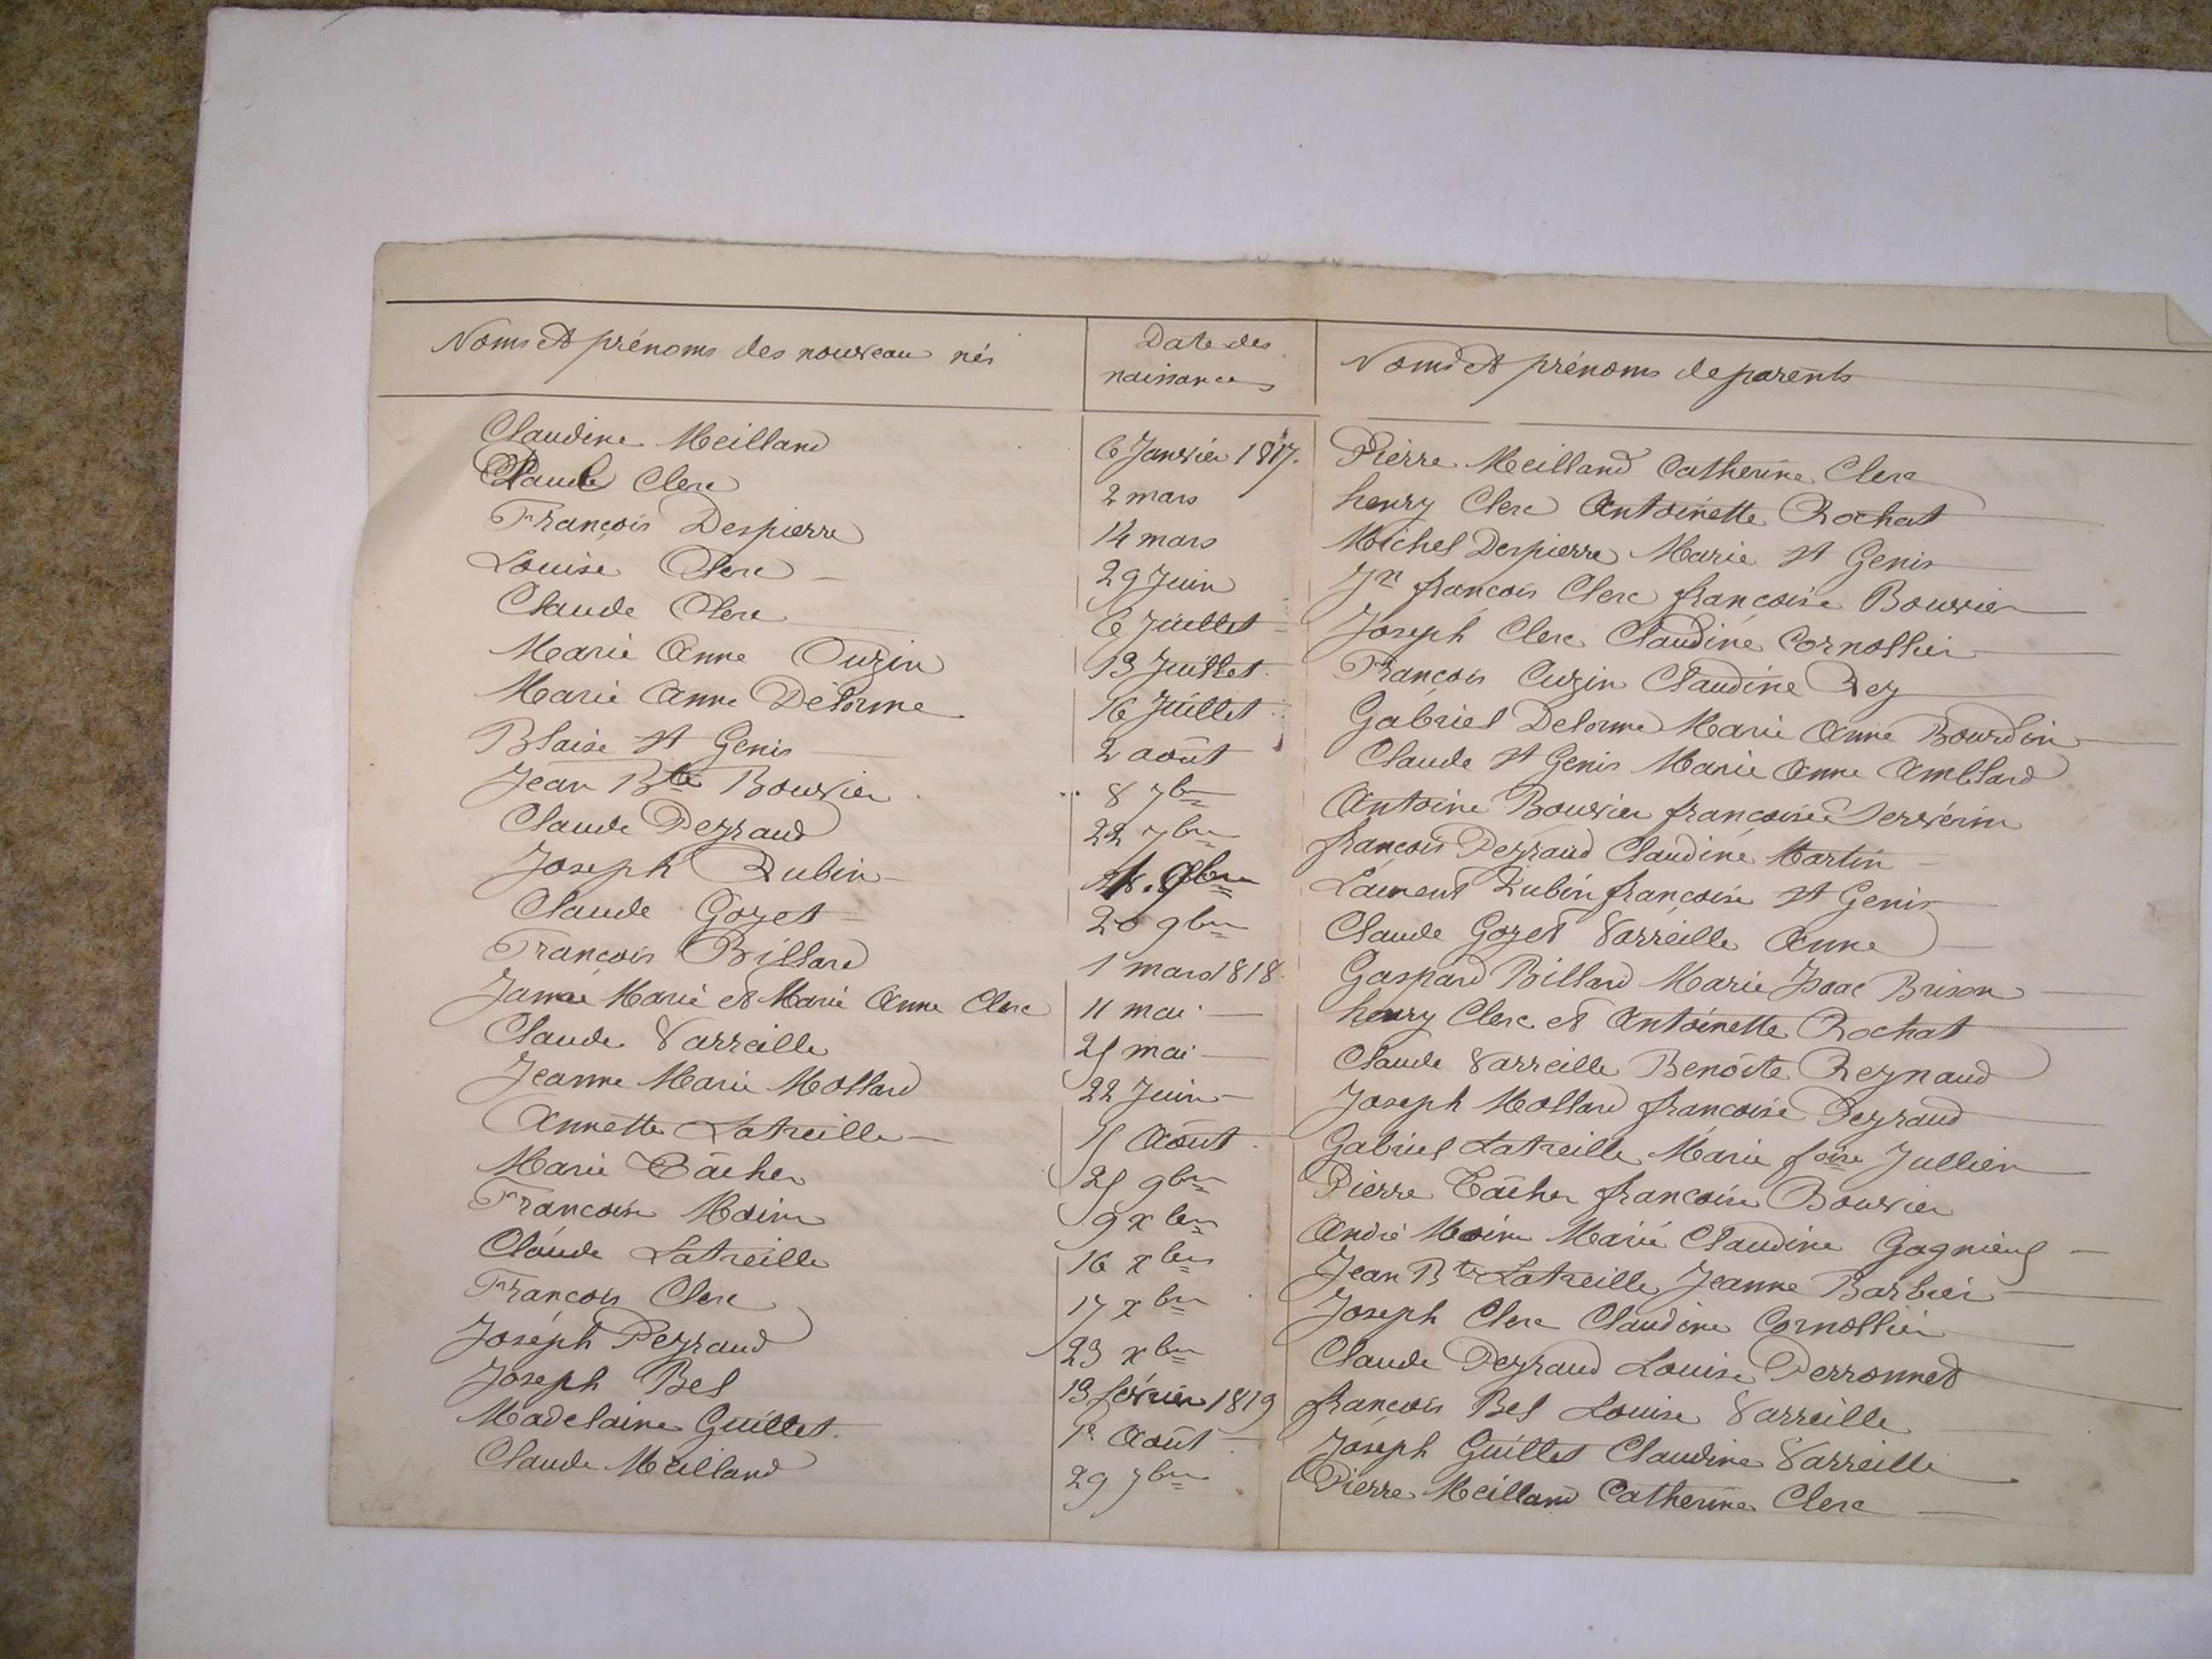 Noms et prénoms des nouveau nés
Date des naissances
Noms et prénoms de parents
Claudine Meilland 6 Janvier 1817. Pierre Meilland Catherine Clerc
Claude Clerc 2 mars henry Clerc Antoinette Rochat
François Despierre 14 mars Michel Despierre Marie St Genis
Louise Clerc 29 Juin Jn françois Clerc françoise Bouvier
Claude Clerc 6 Juillet Joseph Clerc Claudine Cornollier
Marie Anne Cuzin 13 Juillet François Cuzin Claudine Rey
Marie Anne Delorme 16 Juillet Gabriel Delorme Marie Anne Bourdin
Blaise St Genis 2 août Claude St Genis Marie Anne Amblard
Jean Bte Bouvier 8 7bre Antoine Bouvier françoise
Claude Peyraud 22 7bre françois Peyraud Claudine Martin
Joseph Rubin Laurent Rubin françoise St Genis
Claude Gozet 20 9bre Claude Gozet Varreille Anne
François Billard 1 mars 1818 Gaspard Billard Marie Isaac Brison
Marie et Marie Anne Clerc 11 mai henry Clerc et Antoinette Rochat
Claude Varreille 25 mai Claude Varreille Benoîte Reynaud
Jeanne Marie Mollard 22 Juin Joseph Mollard françoise Peyraud
Annette Latreille 15 Août Gabriel Latreille Marie foise Jullien
Marie Bâcher 25 9bre Pierre Bâcher françoise Bouvier
Françoise Moine 9 xbre André Moine Marie Claudine
Claude Latreille 16 xbre Jean Bte Latreille Jeanne Barbier
François Clerc 17 xbre Joseph Clerc Claudine Cornollier
Joseph Peyraud 23 xbre Claude Peyraud Louise Perronnet
Joseph Bel 13 février 1819 françois Bel Louise Varreille
Madelaine Guillet 1er Août Joseph Guillet Claudine Varreille
Claude Meilland 29 7bre Pierre Meilland Catherine Clerc